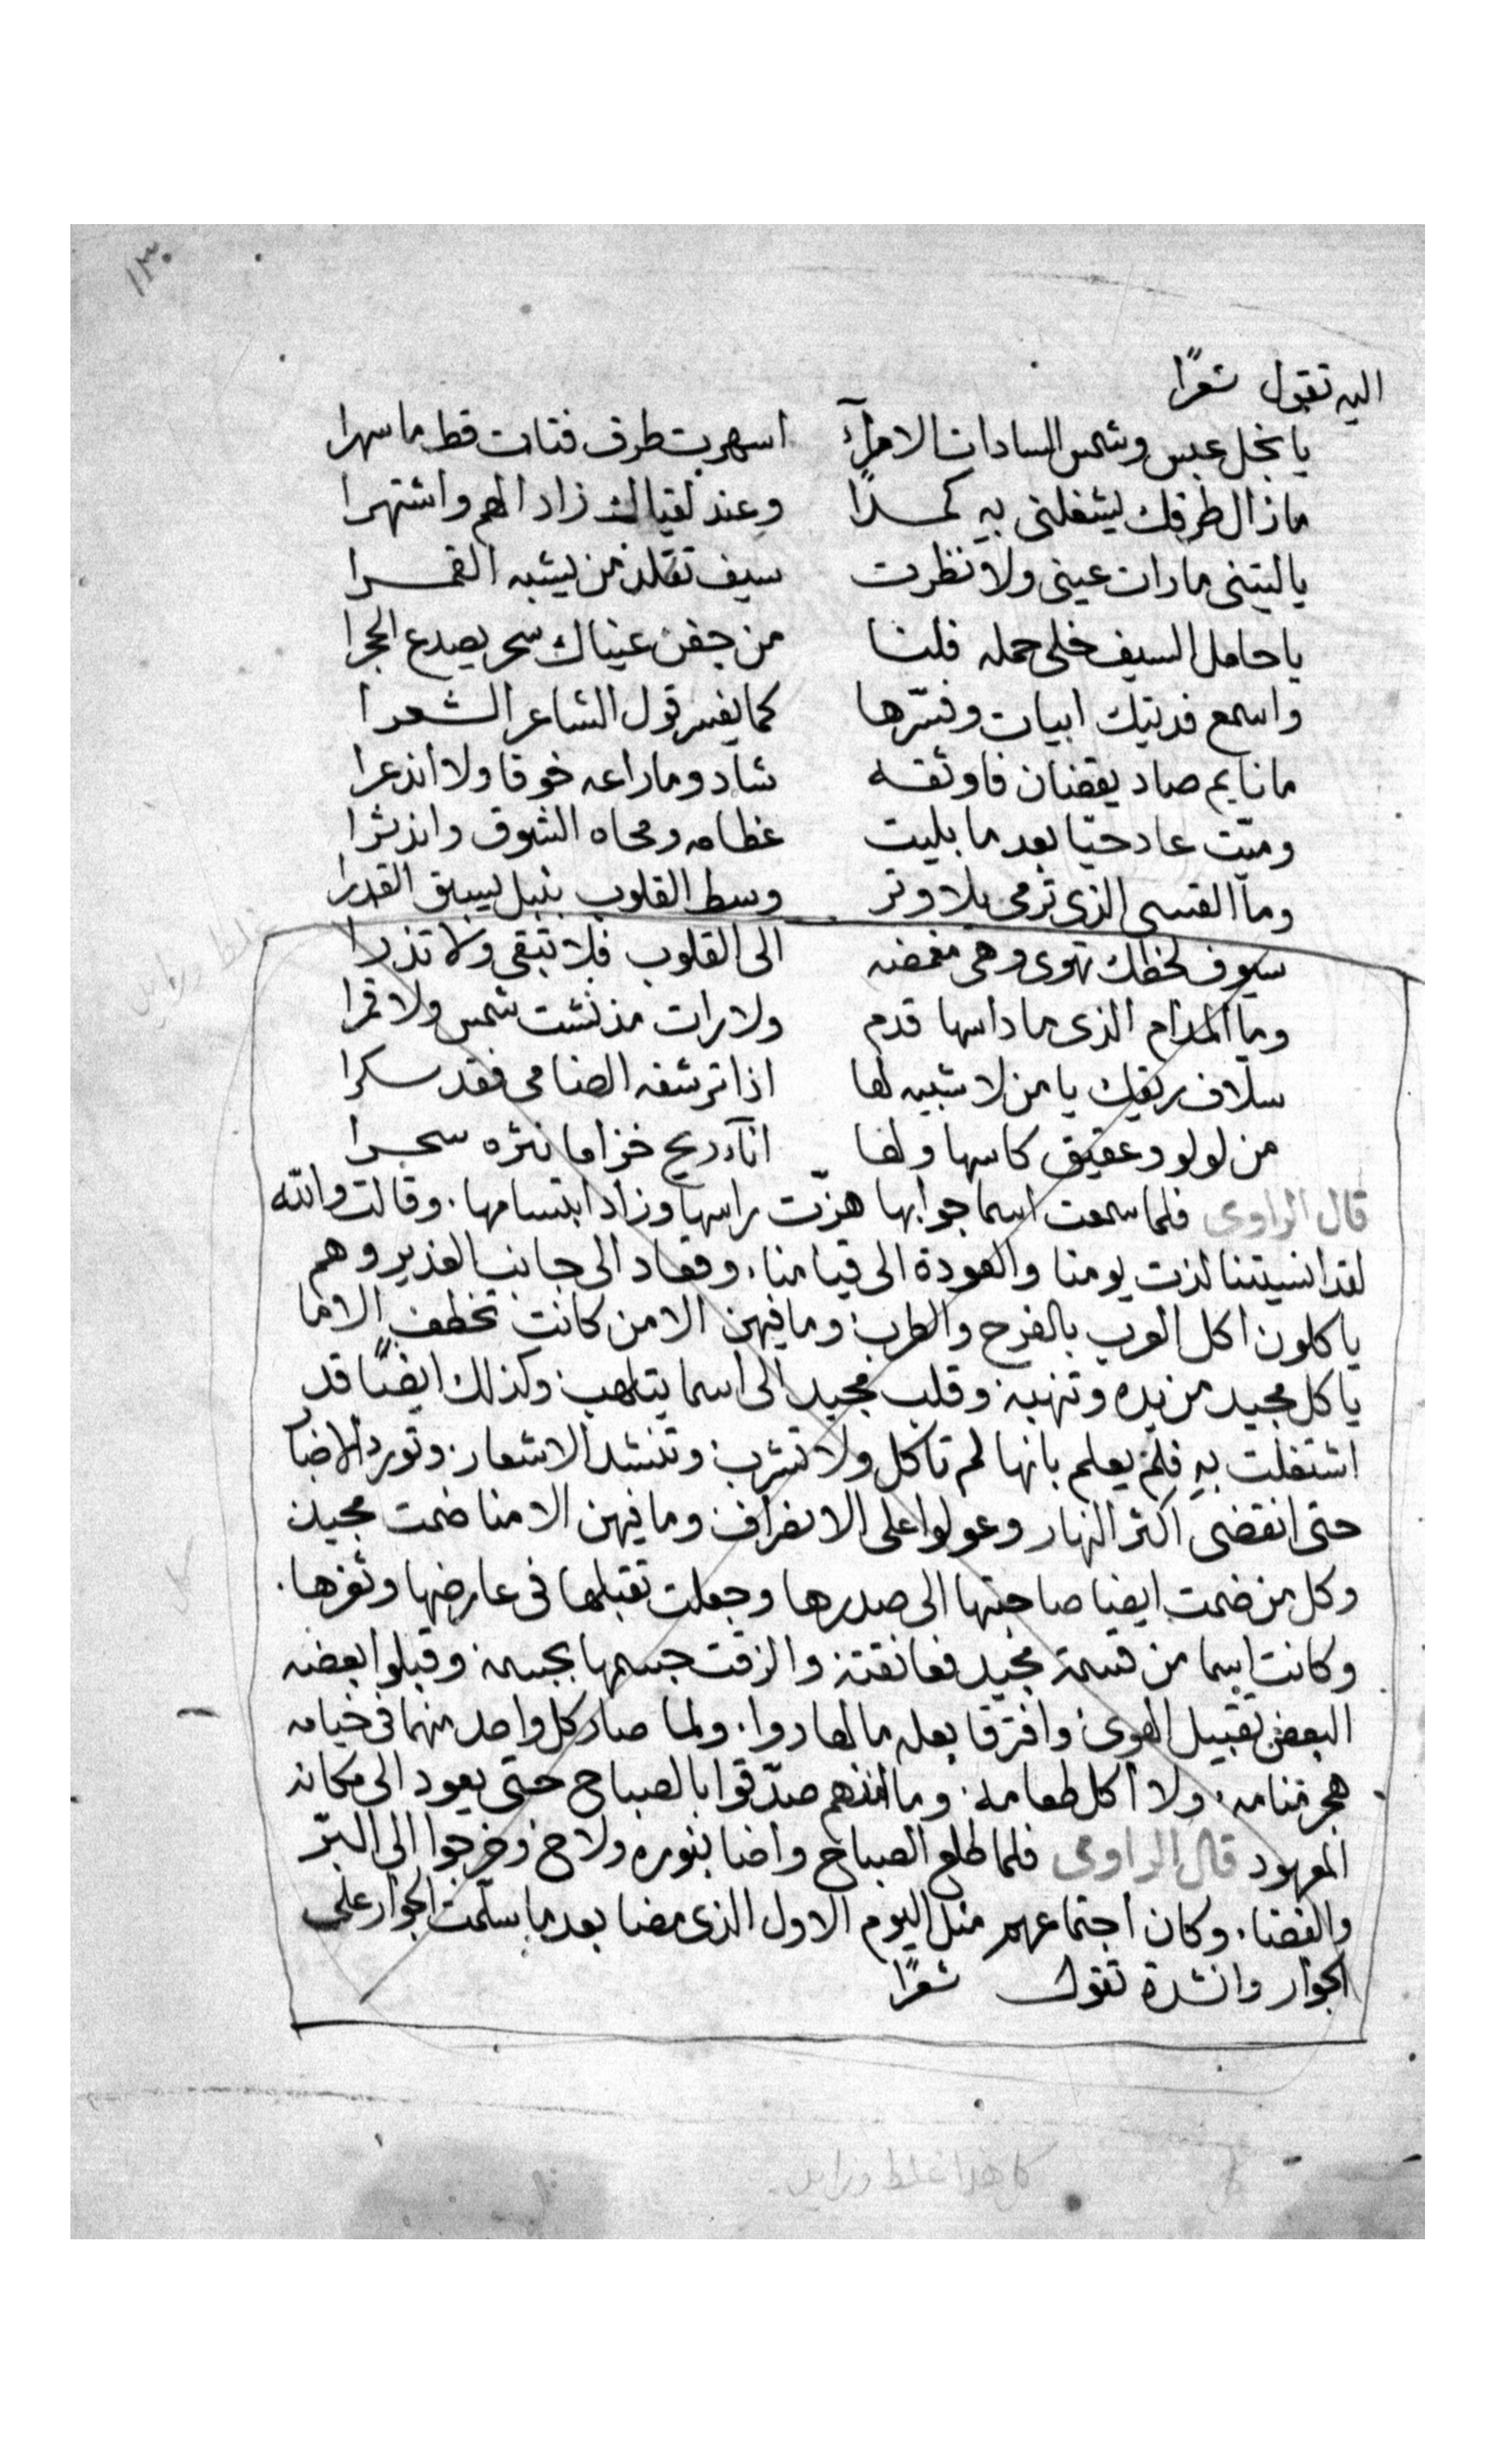 ١٣٠
اليه تقول شعرًا
يا نجل عبس وشمس السادات الامرآء اسهرت طرف فتات قط ما سهرا
ماذال طرفك ليشغلنى به كمدًا وعند لقياك زاد الهم واشتهرا
ياليتنى مارات عينى ولا نظرت سيف تقلد من يشبه القمرا
يا حامل السيف خلى حمله فلنا من جفن عيناك سحر يصدع الحجرا
واسمع فديتك ابيات وفسّرها كما يفسر قول الشاعر الشعرا
ما نايم صاد يقضان فاوثقه شاد وماراعه خوفا ولا انذعرا
وميّت عاد حيّا بعد ما بليت عظامه ومحاه الشوق واندثرا
وما القسى الذى ترمى بلا وتر وسط القلوب بنبل يسبق القدرا
سيوف لحظك تهوى وهى مغمضه الى القلوب فلا تبقى ولا تذرا
وما المدام الذى ما داسها قدم ولا رات مذ نشت شمس ولا قمرا
سلاف ريقك يا من لا شبيه لها اذا ترشفه الضامى فقد سكرا
من لولو وعقيق كاسها ولها اناء ريح خزاما نثره سحرا
قال الراوى فلما سمعت اسما جوابها هزّت راسها وزاد ابتسامها. وقالت والله
لقد انسيتنا لذت يومنا والعودة الى قيامنا. وقعاد الى جانب الغدير وهم
ياكلون اكل العرب بالفرح والطرب وما فيهن الا من كانت تخطف الاما
ياكل مجيد من يده وتنهبه وقلب مجيد الى اسما يتلهب وكذلك ايضًا قد
اشتغلت به فلم يعلم بانها لم تاكل ولا تشرب وتنشد الاشعار وتورد الاخبا
حتى انقضى اكثر النهار وعولوا على الانفراف وما فيهن الا منا ضمت مجيد
وكل من ضمت ايضا صاحبتها الى صدرها وجعلت تقبلها فى عارضها وثغرها.
وكانت اسما من قسمة مجيد فعانقته والزقت جسمها بجسمه وقبلوا بعضه
البعض تقبيل الهوى وافترقا بعد ما تهادوا. ولما صار كل واحد منهما فى خيامه
هجر منامه. ولا اكل طعامه. وما انهم صدّقوا بالصباح حتى يعود الى مكانه
المعهود قال الراوى فلما طلع الصباح واضا بنوره ولاح وخرجوا الى البرّ
والفضا. وكان اجتماعهم مثل اليوم الاول الذى مضا بعد ما سلّمت الجوار على
الجوار وانشدة تقول شعرًا
كل هذا غلط وزايد